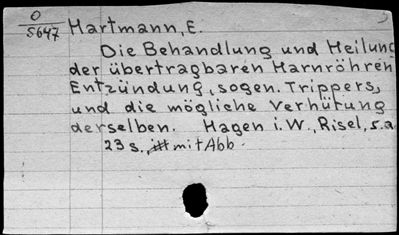 O
5647
Hartmann, E.
Die Behandlung und Heilung
der übertragbaren Harnröhren
Entzündung, sogen. Trippers,
und die mögliche Verhütung
derselben. Hagen i.W., Risel, s.a.
23 s., mit Abb.